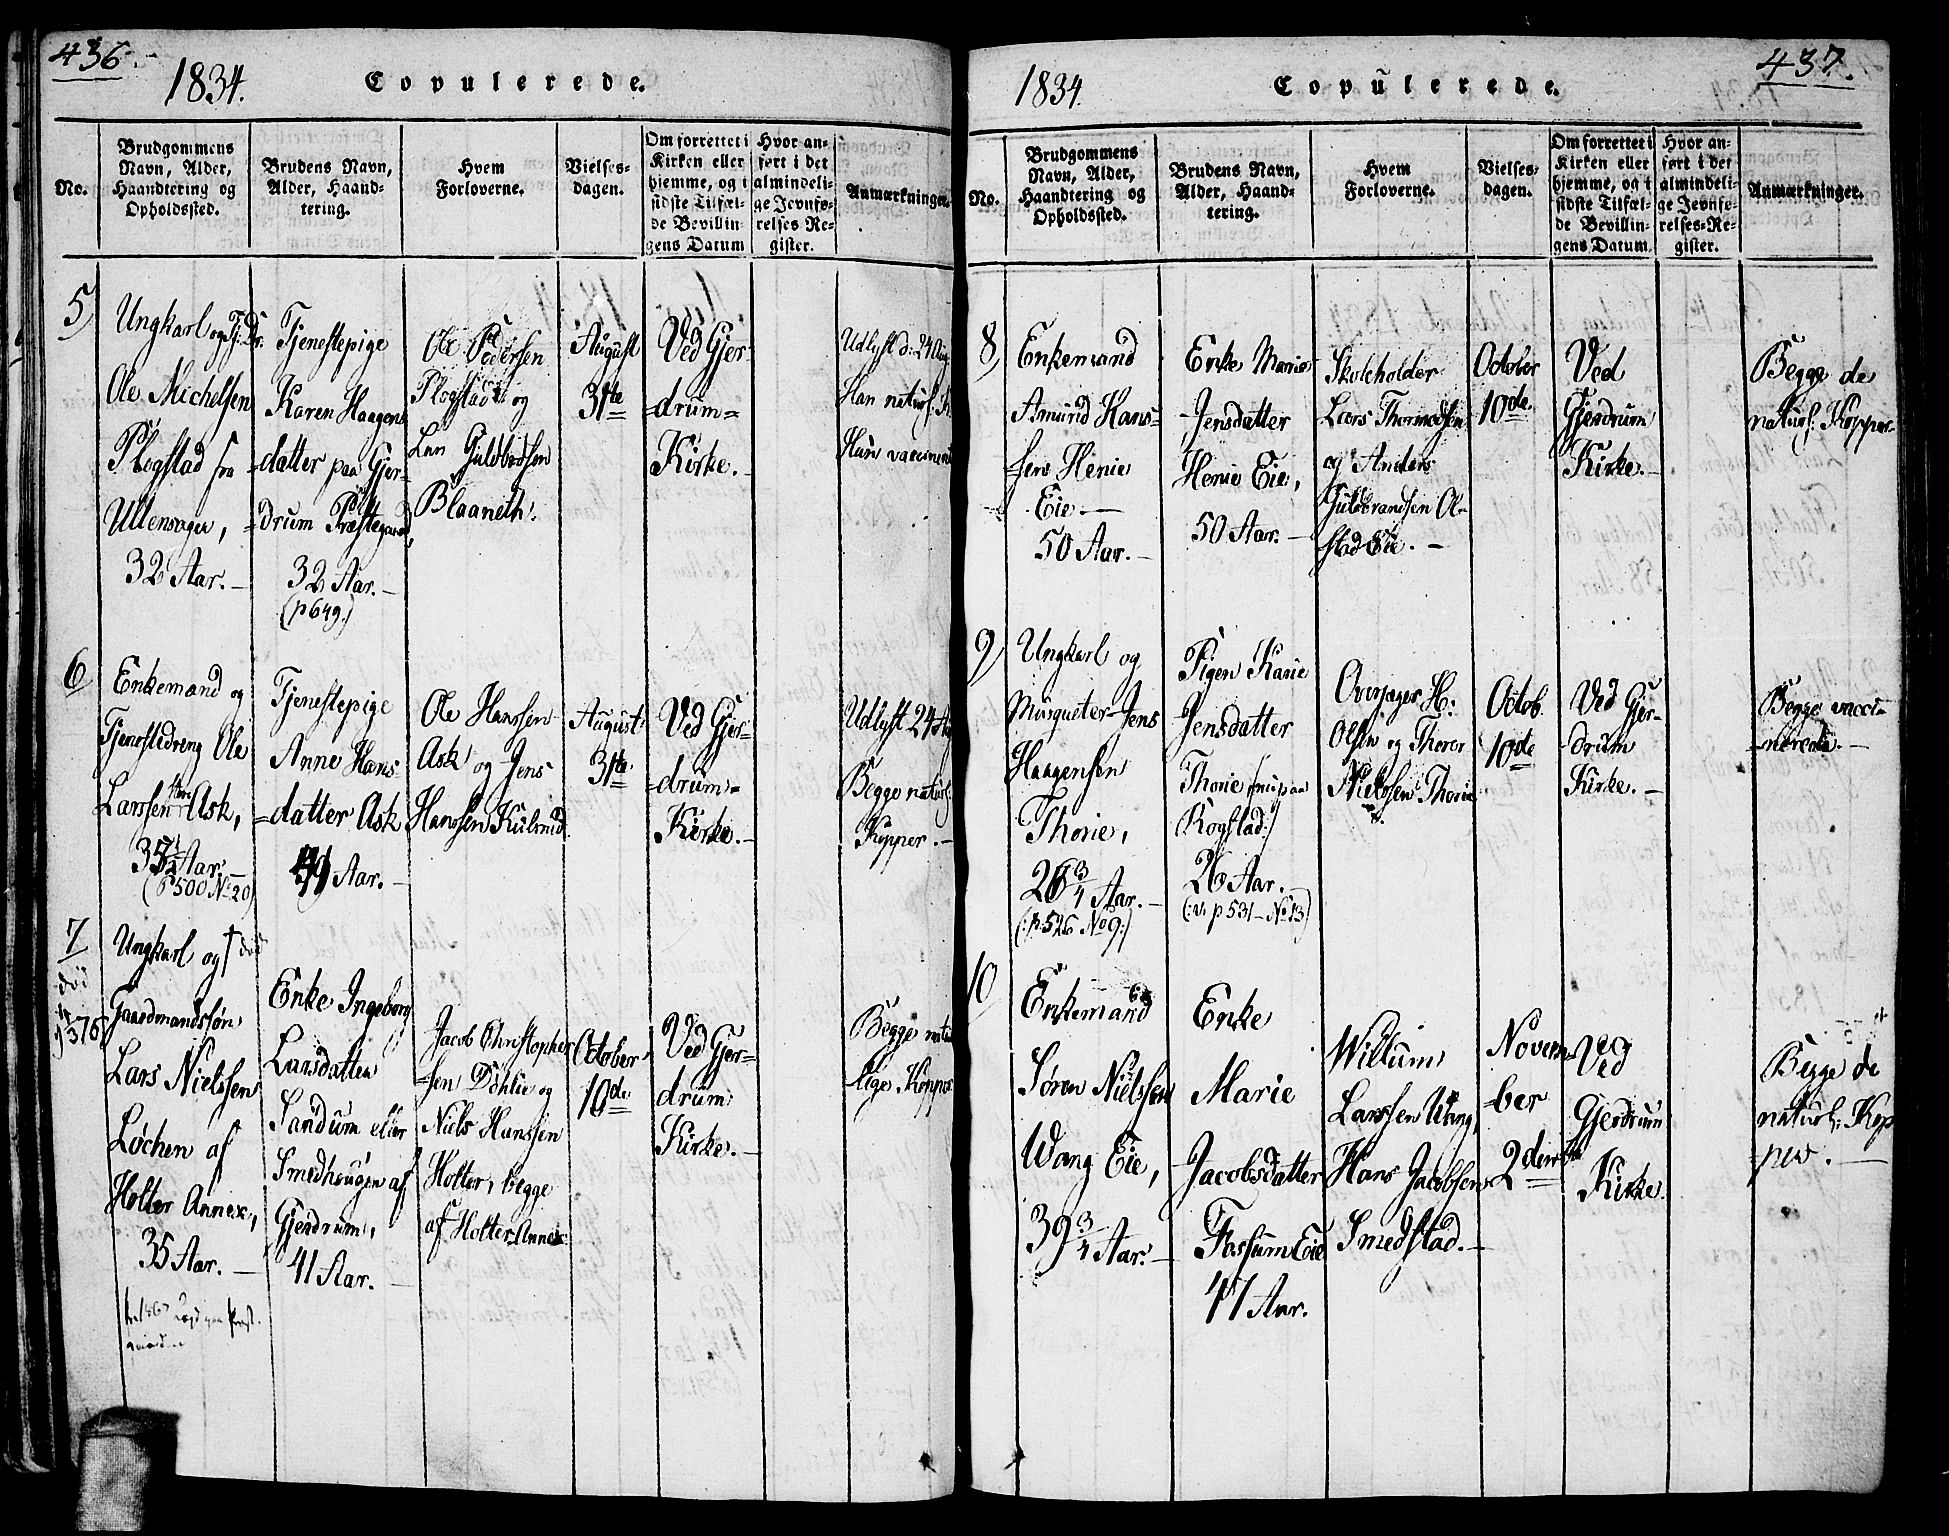 436.
1834.
Copulerede.
No.
Brudgommens
Navn, Alder,
Haandtering og
Opholdssted.
Brudens Navn,
Alder, Haand-
tering.
Hvem
Forloverne.
Vielses-
dagen.
Om forrettet i
Kirken eller
hjemme, og i
sidste Tilfæl-
de Bevillin-
gens Datum
Hvor an-
ført i det
almindeli-
ge Jevnfø-
relses Re-
gister.
Anmærkninger.
5)
Ungkarl og
Ole Michelsen
Plogstad fra
Ullensager,
32 Aar.
Tjenestepige
Karen Haagens
datter paa Gjer-
drum Præstegaard,
32 Aar.
(p 649.)
Ole Pedersen
Plogstad og
Lars Guldbrdsen
August
31te
Ved Gjer-
drum-
Kirke.
Udlyst d: 24 Aug
Han naturl. K
Hun vaccinered
6
Enkemand og
Tjenestedreng Ole
Larssen Ask,
35½ Aar.
(P500 No 20)
Tjenestepige
Anne Hans
datter Ask
Aar.
Ole Hanssen
Ask og Jens
Hanssen Kulsrud.
August
31te
Ved Gjer-
drum-
Kirke.
Udlyst 24 Aug
Begge naturl:
Kopper.
7
død
Ungkarl og † død
Gaardmandssøn
Lars Nielssen
Løchen af
Holter Annex,
35 Aar.
Enke Ingeborg
Larsdatter
Sandum eller
Smedhaugen af
Gjerdrum,
41 Aar.
Jacob Christopher
sen Døhlie og
Niels Hanssen
Holter, begge
af Holter Annex
October
10de
Ved Gjer-
drum
Kirke.
Begge natur
lige Kopper
437.
1834.
Copulerede.
No.
Brudgommens
Navn, Alder,
Haandtering og
Opholdssted.
Brudens Navn,
Alder, Haand-
tering.
Hvem
Forloverne.
Vielses-
dagen.
Om forrettet i
Kirken eller
hjemme, og i
sidste Tilfæl-
de Bevillin-
gens Datum.
Hvor an-
ført i det
almindeli-
ge Jevnfø-
relses-Re-
gister.
Anmærkninger.
8)
Enkemand
Amund Hans-
sen Henie
Eie.
50 Aar.
Enke Marie
Jensdatter
Henie Eie,
50 Aar.
Skoleholder
Lars Thormodsen
og Anders
Guldbrandsen Ol-
stad Eie.
October
10de.
Ved
Gjerdrum
Kirke.
Begge de
naturl: Kopper
9)
Ungkarl og
Musqueter Jens
Haagensen
Thorie,
26 3/4 Aar.
(:p. 526 No 9:)
Pigen Karie
Jensdatter
Thorie nu paa
Rogstad:)
26 Aar.
(: p 531 - No 13)
Overjager H:
Olsen og Thorer
Nielssen Thorie
Octob.
10de
Ved Gjer-
drum
Kirke.
Begge vacci-
nerede.
10
Enkemand
Søren Nielssen
Wang Eie,
39 3/4 Aar.
Enke
Marie
Jacobsdatter
Fossum Eie
47 Aar.
Willum
Larssen Wang,
Hans Jacobsen
Smedstad.
Novem-
ber
2den
Ved
Gjerdrum
Kirke.
Begge de
naturl: Kop
per.